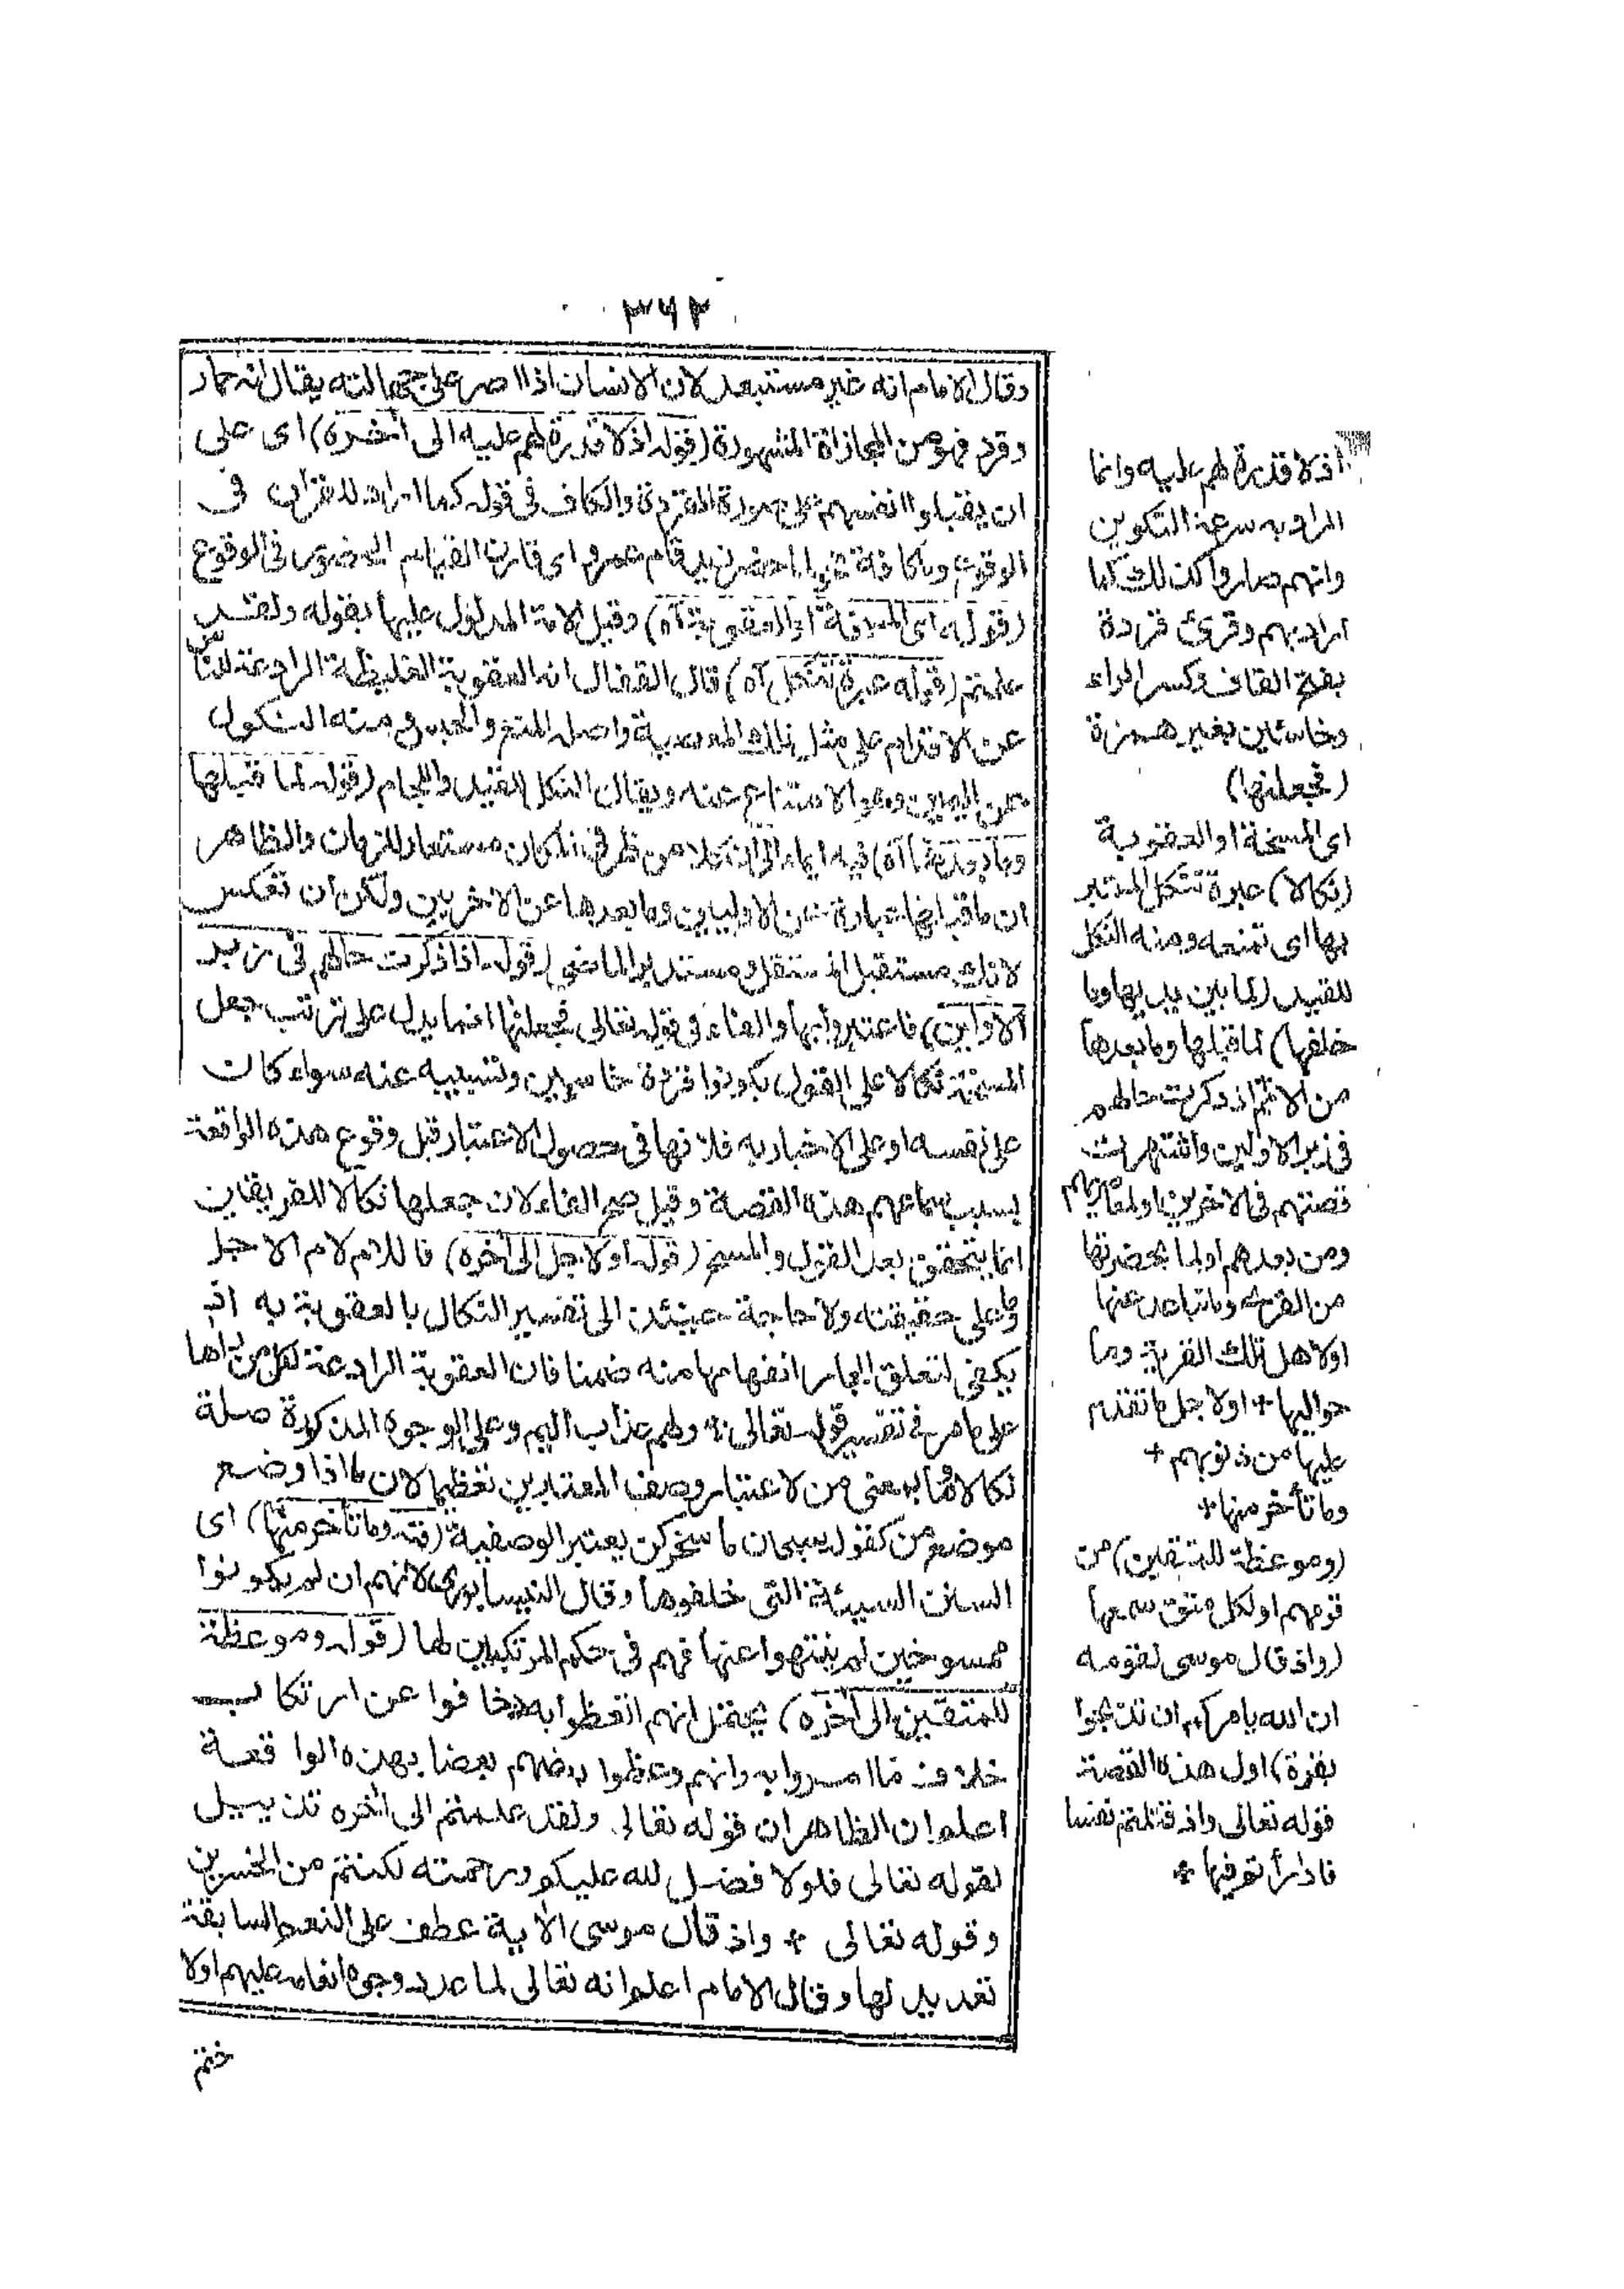 ٣٦٢
وقال الامام انه غير مستبعد لان الانسان اذا اصر على جهالته يقال انه حمار
وقرد فهو من المجازاة المشهورة (قوله اذ لا قدرة لهم عليه الى آخره) اى على
ان يقلبوا انفسهم على صورة القردة والكاف فى قوله كما اراد للقران فى
الوقوع وما كافة نحو لما حضر زيد قام عمرو اى قارن القيام الحضور فى الوقوع
(قوله اى المسخة او العقوبة آه) وقيل الامة المدلول عليها بقوله ولقد
علمتم (قوله عبرة تنكل آه) قال القفال انه العقوبة الغليظة الرادعة للناس
عن الاقدام على مثل تلك المعصية واصله المنع والحبس ومنه النكول
عن اليمين وهو الامتناع عنه ويقال النكل القيد واللجام (قوله لما قبلها
وما بعدها آه) فيه ايماء الى ان كلا من ظرفى المكان مستعار للزمان والظاهر
ان ما قبلها عبارة عن الاولين وما بعدها عن الآخرين ولكن ان تعكس
لانك مستقبل المستقبل ومستدبر الماضى (قوله اذا ذكرت حالهم فى زبر
الاولين) فاعتبروا بها والفاء فى قوله تعالى فجعلنها انما يدل على ترتب جعل
المسخة نكالا على القول بكونوا قردة خاسئين وتسببه عنه سواء كان
على نفسه او على الاخبار به فلا نها فى حصول الاعتبار قبل وقوع هذه الواقعة
بسبب سماعهم هذه القصة وقيل صح الفاء لان جعلها نكالا للفريقين
انما يتحقق بعد القول والمسخ (قوله او لاجل الى آخره) فاللام لام الاجل
وما على حقيقته ولا حاجة حينئذ الى تفسير النكال بالعقوبة به اذ
يكفى لتعلق الجار انفهامها منه ضمنا فان العقوبة الرادعة لكل من يراها
على ما مر فى تفسير قوله تعالى * ولهم عذاب اليم وعلى الوجوه المذكورة صلة
نكالا وما بمعنى من لاعتبار وصف المعتبرين تعظيما لان ما اذا وضع
موضع من كقوله سبحان ما سخركن يعتبر الوصفية (قوله وما تأخر منها) اى
السنن السيئة التى خلفوها وقال النيسابورى لانهم ان لم يكونوا
ممسوخين لم ينتهوا عنها فهم فى حكم المرتكبين لها (قوله وموعظة
للمتقين الى آخره) يحتمل انهم اتعظوا به وخافوا عن ارتكاب
خلاف ما امروا به وانهم وعظوا بعضهم بعضا بهذه الواقعة
اعلم ان الظاهر ان قوله تعالى ولقد علمتم الى آخره تذييل
لقوله تعالى فلولا فضل الله عليكم ورحمته لكنتم من الخسرين
وقوله تعالى * واذ قال موسى الآية عطف على النعم السابقة
تعديد لها وقال الامام اعلم انه تعالى لما عدد وجوه انعامه عليهم اولا
ختم
اذ لا قدرة لهم عليه وانما
المراد به سرعة التكوين
وانهم صاروا كذلك كما
اراد بهم وقرئ قردة
بفتح القاف وكسر الراء
وخاسئين بغير همزة
(فجعلنها)
اى المسخة او العقوبة
(نكالا) عبرة تنكل المعتبر
بها اى تمنعه ومنه النكل
للقيد (لما بين يديها وما
خلفها) لما قبلها وما بعدها
من الامم اذ ذكرت حالهم
فى زبر الاولين واشتهرت
قصتهم فى الآخرين او لمعاصريهم
ومن بعدهم او لما بحضرتها
من القرى وما تباعد عنها
او لاهل تلك القرية وما
حواليها * او لاجل ما تقدم
عليها من ذنوبهم *
وما تأخر منها *
(وموعظة للمتقين) من
قومهم او لكل متق سمعها
(واذ قال موسى لقومه
ان الله يامركم ان تذبحوا
بقرة) اول هذه القصة
قوله تعالى واذ قتلتم نفسا
فادارأتم فيها *